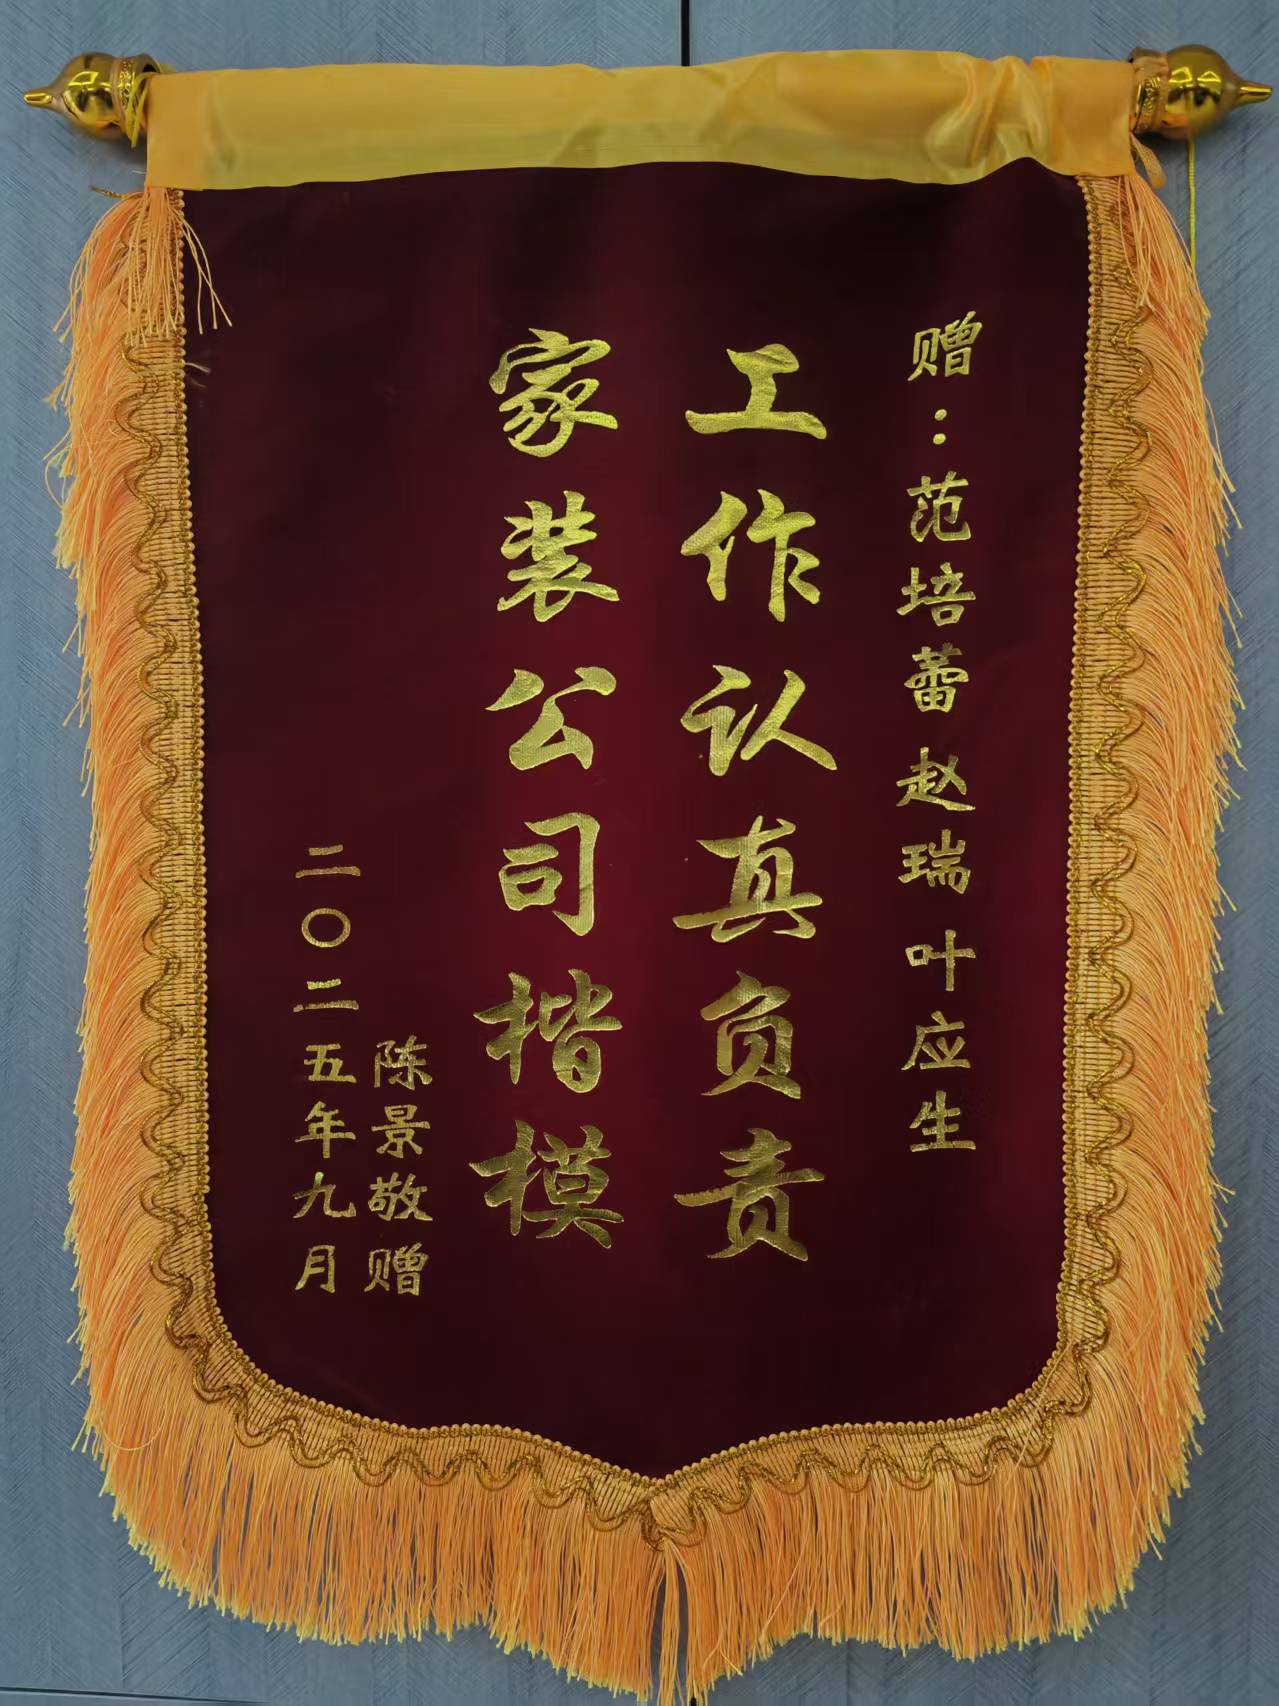 赠：范培蕾 赵瑞 叶应生
工作认真负责
家装公司楷模
陈景敬赠
二〇二五年九月